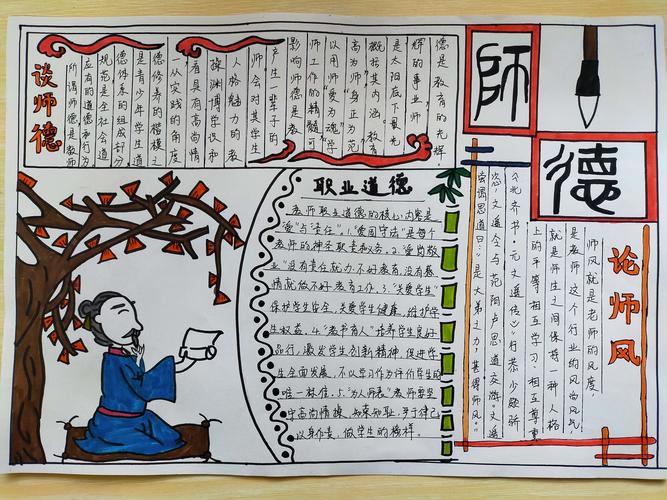 谈师德
所谓师德是教师
应有的道德和行为
规范是全社会道
德体系的组成部分
是青少年学生道
德修养的楷模之
一从实践的角度
看具有高尚情
操渊博学识和
人格魅力的教
师会对其学生
产生一辈子的
影响师德是教
师工作的精髓可
以用“师爱为魂“学
高为师”身正为范
概括其内涵。教育
是太阳底下最光
辉的事业师
德是教育的光辉.
師
德
职业道德
教师职业道德的核心内容是
“爱”与“责任”。1.“爱国守法”是每个
教师的神圣职责和义务。2.“爱岗敬
业”没有责任就办不好教育,没有感
情就做不好教育工作。3.“关爱学生”
保护学生安全,关爱学生健康,维护学
生权益。4.“教书育人”培养学生良好
品行,激发学生创新精神,促进学
生全面发展。不以学习作为评价学生的
唯一标准。5.“为人师表”教师要坚
守高尚情操,知荣知耻,严于律己
以身作责,做学生的榜样。
论师风
师风就是老师的风度,
是教师这个行业的风尚风气,
就是师生之间保持一种人格
上的平等相互学习、相互尊重
《北齐书·元文遥传》行恭少颇骄
恣,文遥令与范阳卢思道交游。文遥
尝谓思道曰:“是大弟之力,甚得师风。”